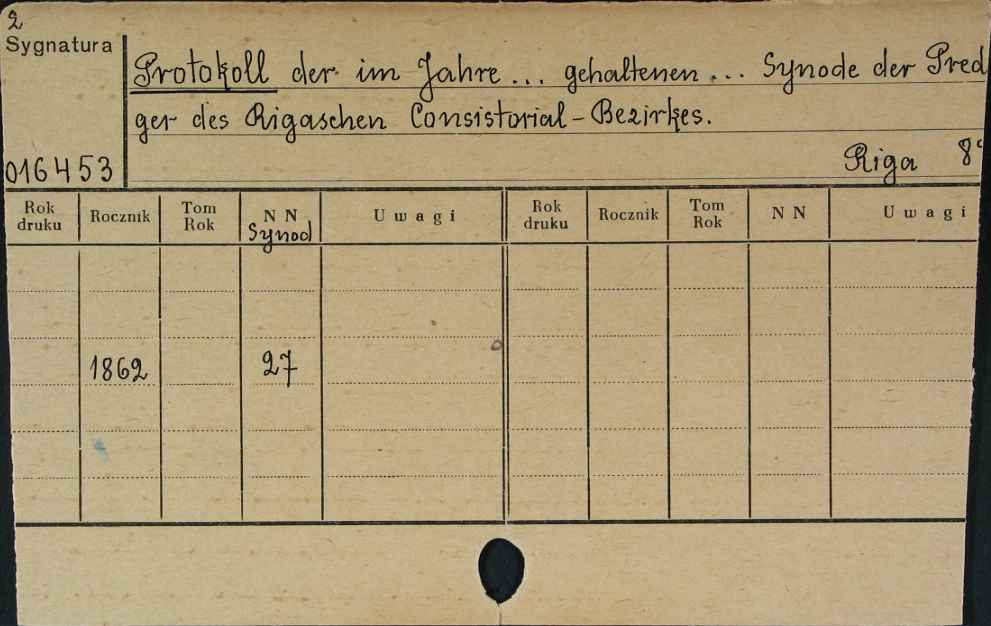 2
Sygnatura
Protokoll der im Jahre ... gehaltenen ... Synode der Pred
ger des Rigaschen Consistorial-Bezirkes.
016453
Riga 8°
Rok druku Rocznik Tom Rok NN Synod Uwagi Rok druku Rocznik Tom Rok NN Uwagi
1862 27